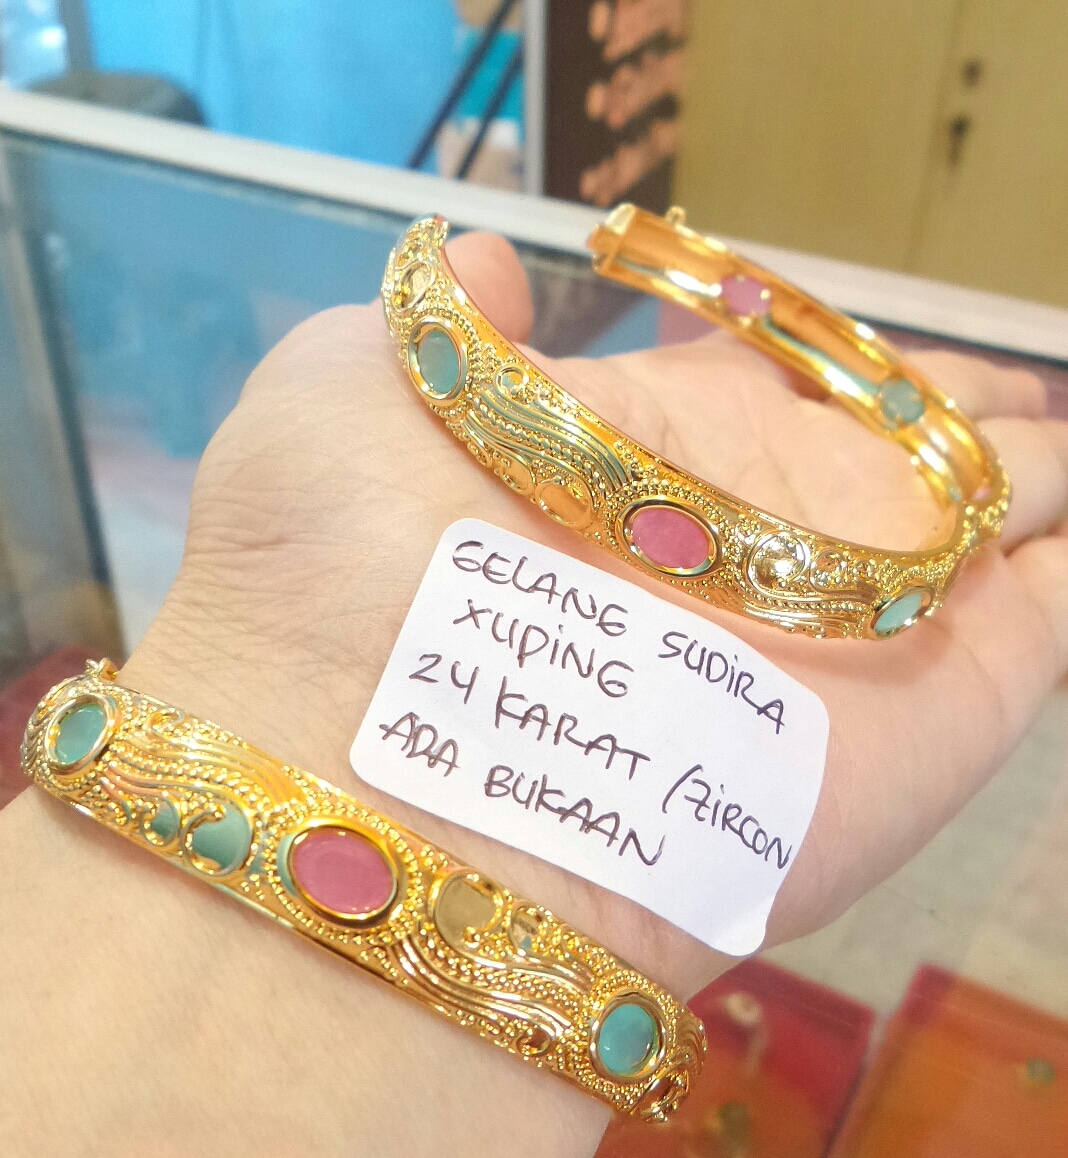 GELANG SUDIRA
XUPING
24 KARAT /ZIRCON
ADA BUKAAN